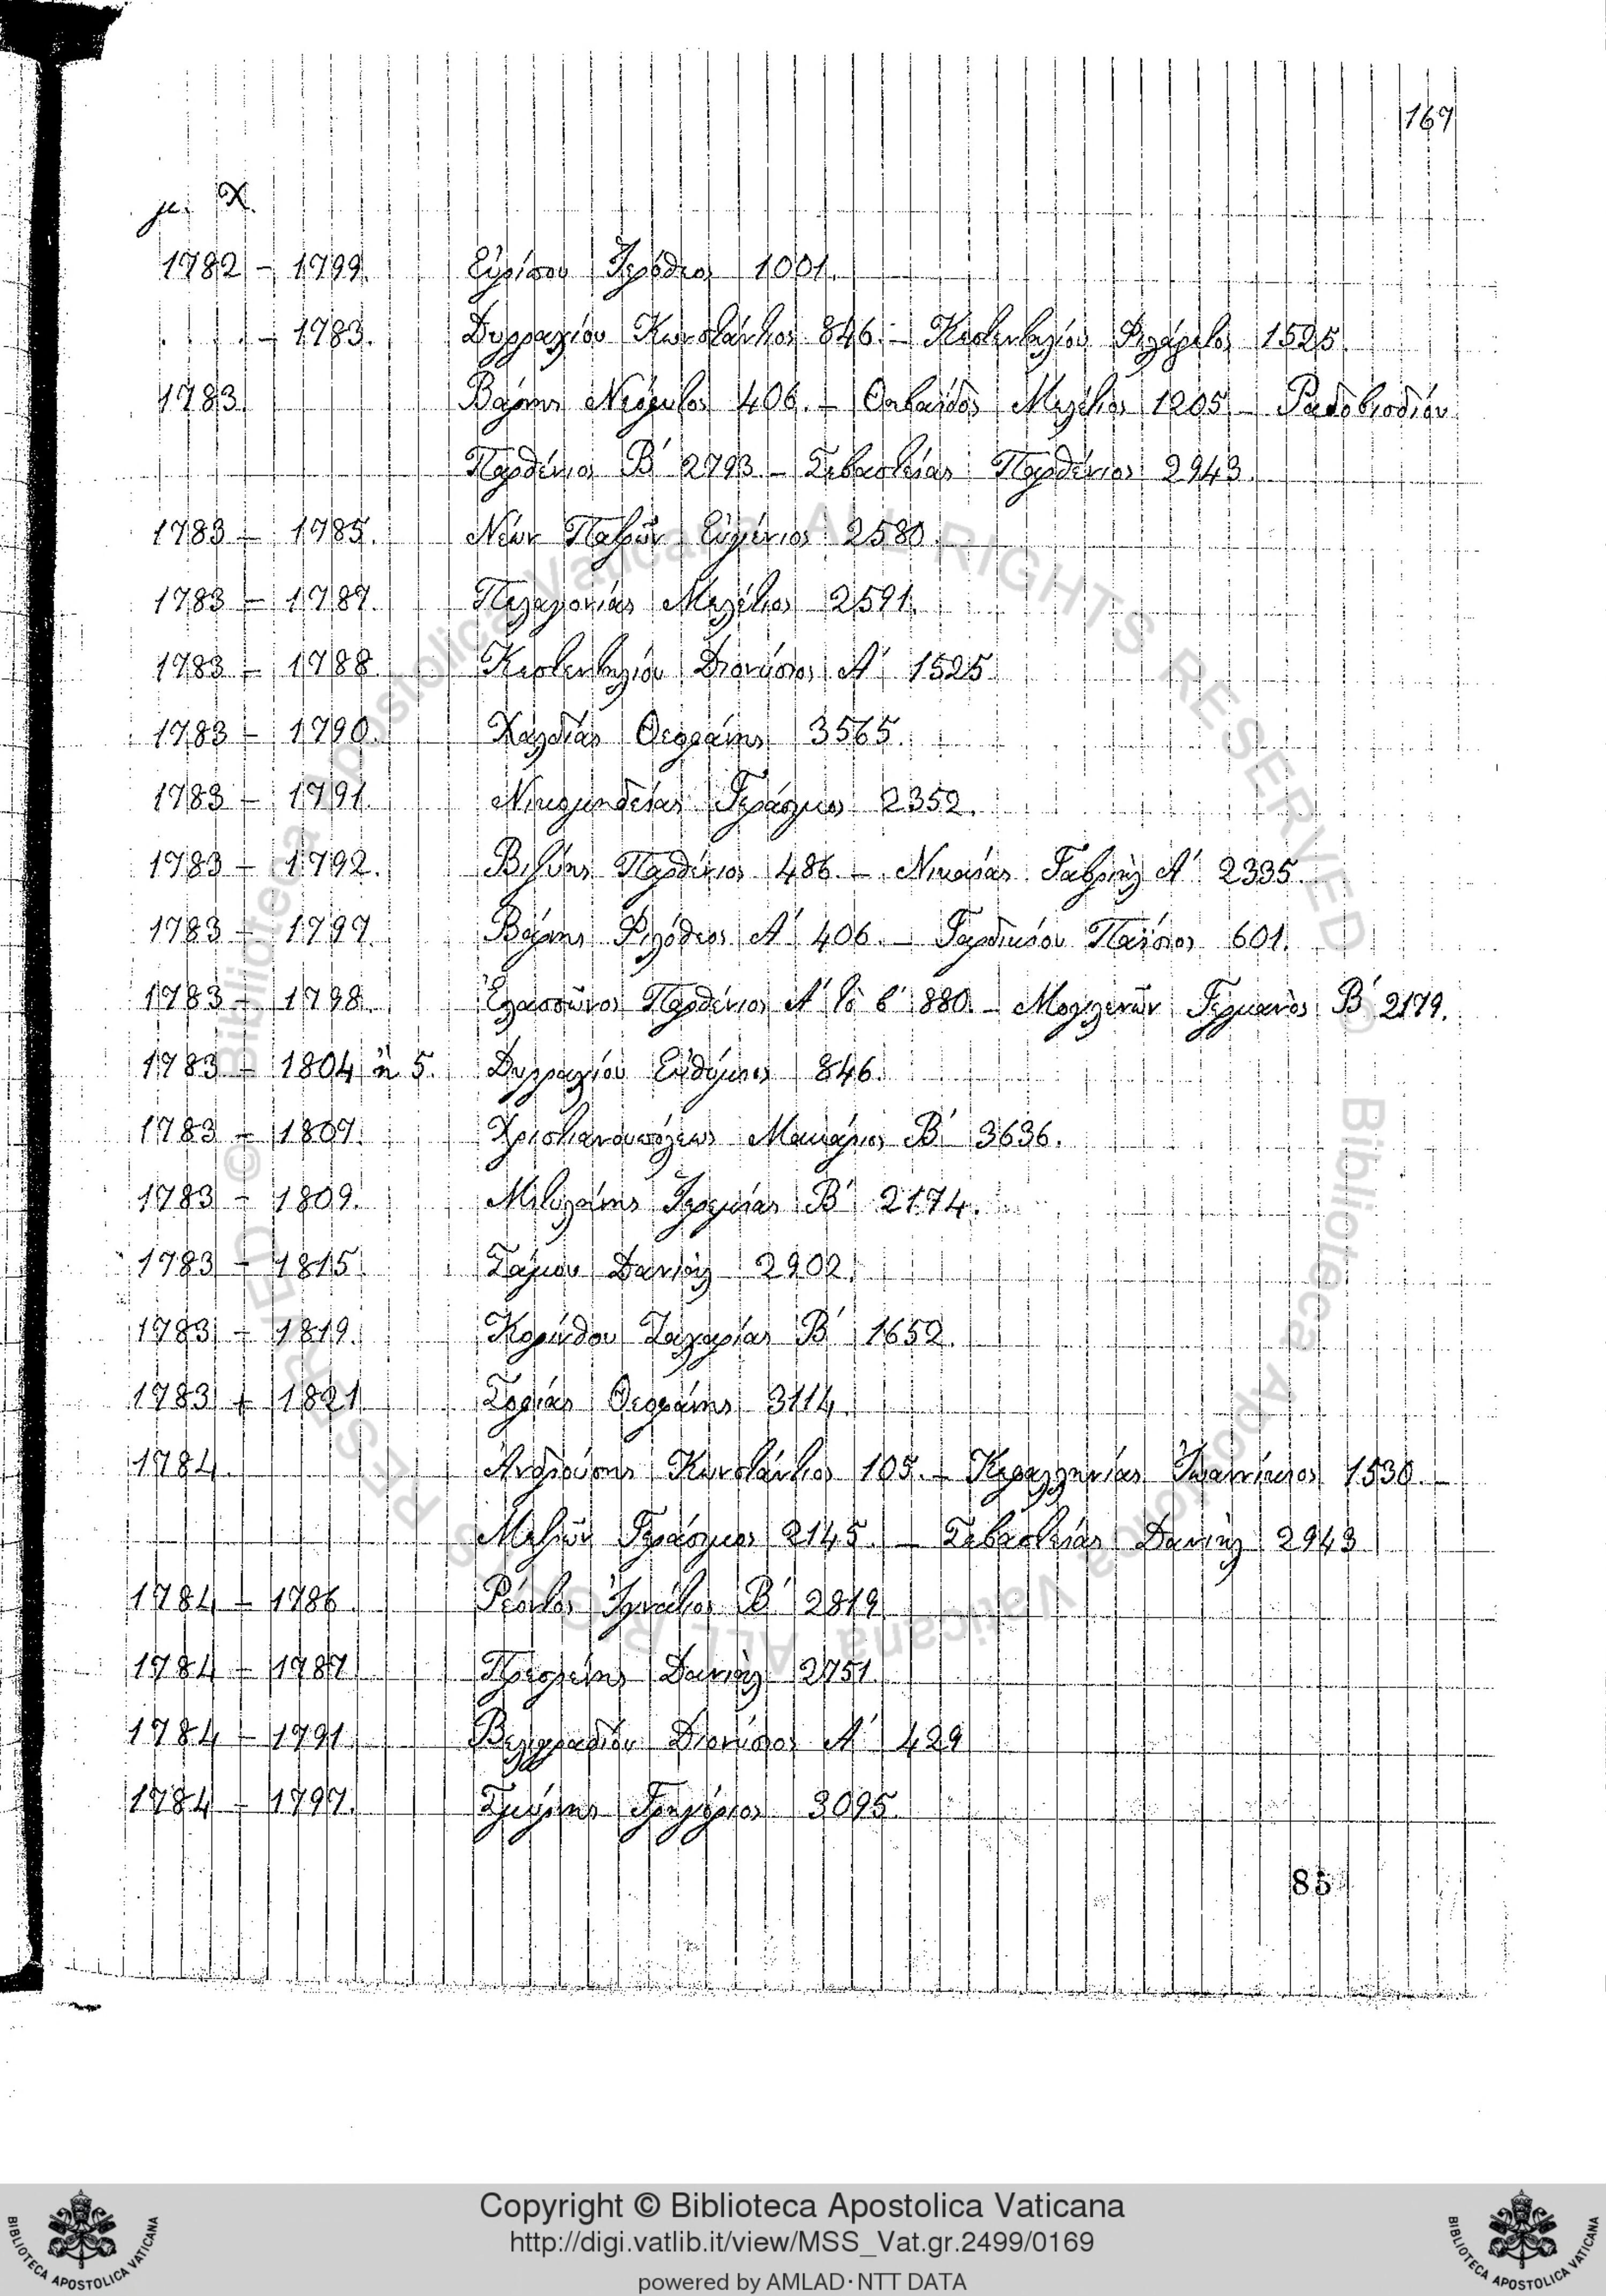 167
μ. Χ.
1782 - 1799. Εὐρίπου Ἱερόθεος 1001.
- 1783. Δυρραχίου Κωνστάντιος 846. - Κρεντενδίου Φιλάρετος 1525.
1783 Βάρνης Νεόφυτος 406. - Μελέτιος 1205 - Ραδοβισδίου
Παρθένιος Β΄ 2793 - Σεβαστείας Παρθένιος 2943.
1783 - 1785. Νέων Πατρῶν Εὐγένιος 2580.
1783 - 1787. Πελαγονίας Μελέτιος 2591.
1783 - 1788. Διονύσιος Α΄ 1525
1783 - 1790. Χαλδίας Θεοφάνης 3565.
1783 - 1791. Νικομηδείας Γεράσιμος 2352.
1783 - 1792. Βιζύης Παρθένιος 486. - Νικαίας Γαβριὴλ Α΄ 2335.
1783 - 1797. Βάρνης Φιλόθεος Α΄ 406. - Γαρδικίου Παΐσιος 601.
1783 - 1798. Ἐλασσῶνος Παρθένιος Α΄ τὸ β΄ 880. - Μογλενῶν Γερμανὸς Β΄ 2179.
1783 - 1804 ἢ 5. Δυρραχίου Εὐθύμιος 846.
1783 - 1807. Χριστιανουπόλεως Μακάριος Β΄ 3636.
1783 - 1809. Μιτυλήνης Ἱερεμίας Β΄ 2174.
1783 - 1815. Σάμου Δανιὴλ 2902.
1783 - 1819. Κορίνθου Ζαχαρίας Β΄ 1652.
1783 - 1821 Σοφίας Θεοφάνης 3114.
1784. Ἀνδρούσης Κωνστάντιος 105. - Ἰωαννίκιος 1530. -
Μετρῶν Γεράσιμος 2145. - Σεβαστείας Δανιὴλ 2943
1784 - 1786. Ρέοντος Ἰγνάτιος Β΄ 2819
1784 - 1787 Πρεσπῶν Δανιὴλ 2751.
1784 - 1791. Βελεγράδων Διονύσιος Α΄ 429
1784 - 1797. Σμύρνης Γρηγόριος 3095.
85
© Biblioteca Apostolica Vaticana ALL RIGHTS RESERVED © Biblioteca Apostolica Vaticana ALL RIGHTS RESERVED
Copyright © Biblioteca Apostolica Vaticana
http://digi.vatlib.it/view/MSS_Vat.gr.2499/0169
powered by AMLAD·NTT DATA
BIBLIOTECA APOSTOLICA VATICANA
BIBLIOTECA APOSTOLICA VATICANA